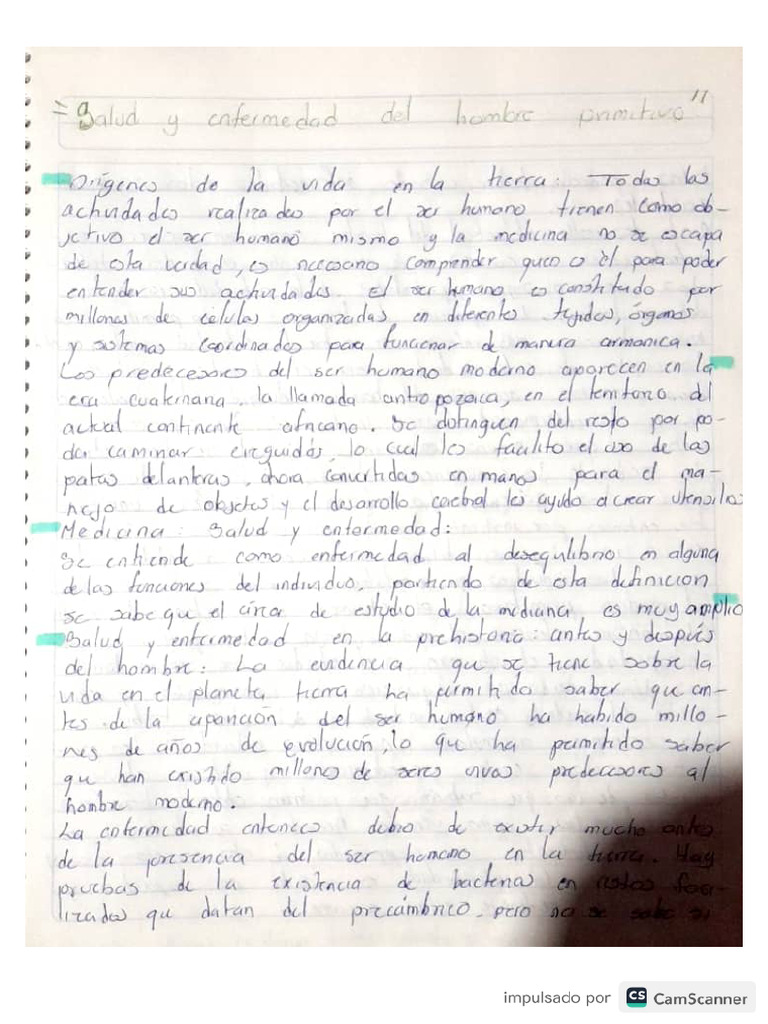 11
= Salud y enfermedad del hombre primitivo
Orígenes de la vida en la tierra: Todas las
actividades realizadas por el ser humano tienen como ob-
jetivo el ser humano mismo y la medicina no se escapa
de esta verdad, es necesario comprender quien es él para poder
entender sus actividades. El ser humano es constituido por
millones de celulas organizadas en diferentes tejidos, órganos
y sistemas coordinados para funcionar de manera armonica.
Los predecesores del ser humano moderno aparecen en la
era cuaternaria, la llamada antropozoica, en el territorio del
actual continente africano. Se distinguen del resto por po-
der caminar erreguidas, lo cual les facilito el uso de las
patas delanteras, ahora convertidas en manos para el ma-
nejo de objetos y el desarrollo cerebral les ayudo a crear utensilios
Medicina: Salud y enfermedad:
Se entiende como enfermedad al desequilibrio en alguna
de las funciones del individuo, partiendo de esta definicion
se sabe que el área de estudio de la medicina es muy amplio
Salud y enfermedad en la prehistoria: antes y después
del hombre: La evidencia que se tiene sobre la
vida en el planeta tierra ha permitido saber que an-
tes de la aparición del ser humano ha habido millo-
nes de años de evolución, lo que ha permitido saber
que han existido millones de seres vivos predecesores al
hombre moderno.
La enfermedad entonces debio de existir mucho antes
de la presencia del ser humano en la tierra. Hay
pruebas de la existencia de bacterias en restos fosi-
lizados que datan del precámbrico, pero no se sabe si
impulsado por CS CamScanner